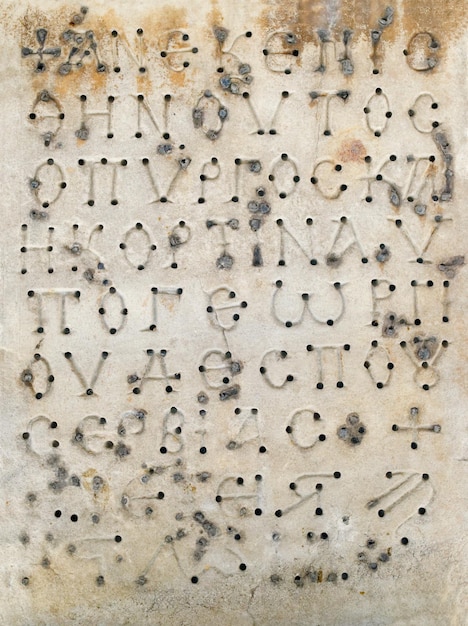 + ΑΝΕΚΕΝΙC
ΘΗΝ ΟΥΤΟC
Ο ΠΥΡΓΟC Κ
Η ΚΟΡΤΙΝΑ Υ
ΠΟ ΓΕωΡΓΙ
ΟΥ ΔΕCΠΟΤȢ
CΕΡΒΙΑC +